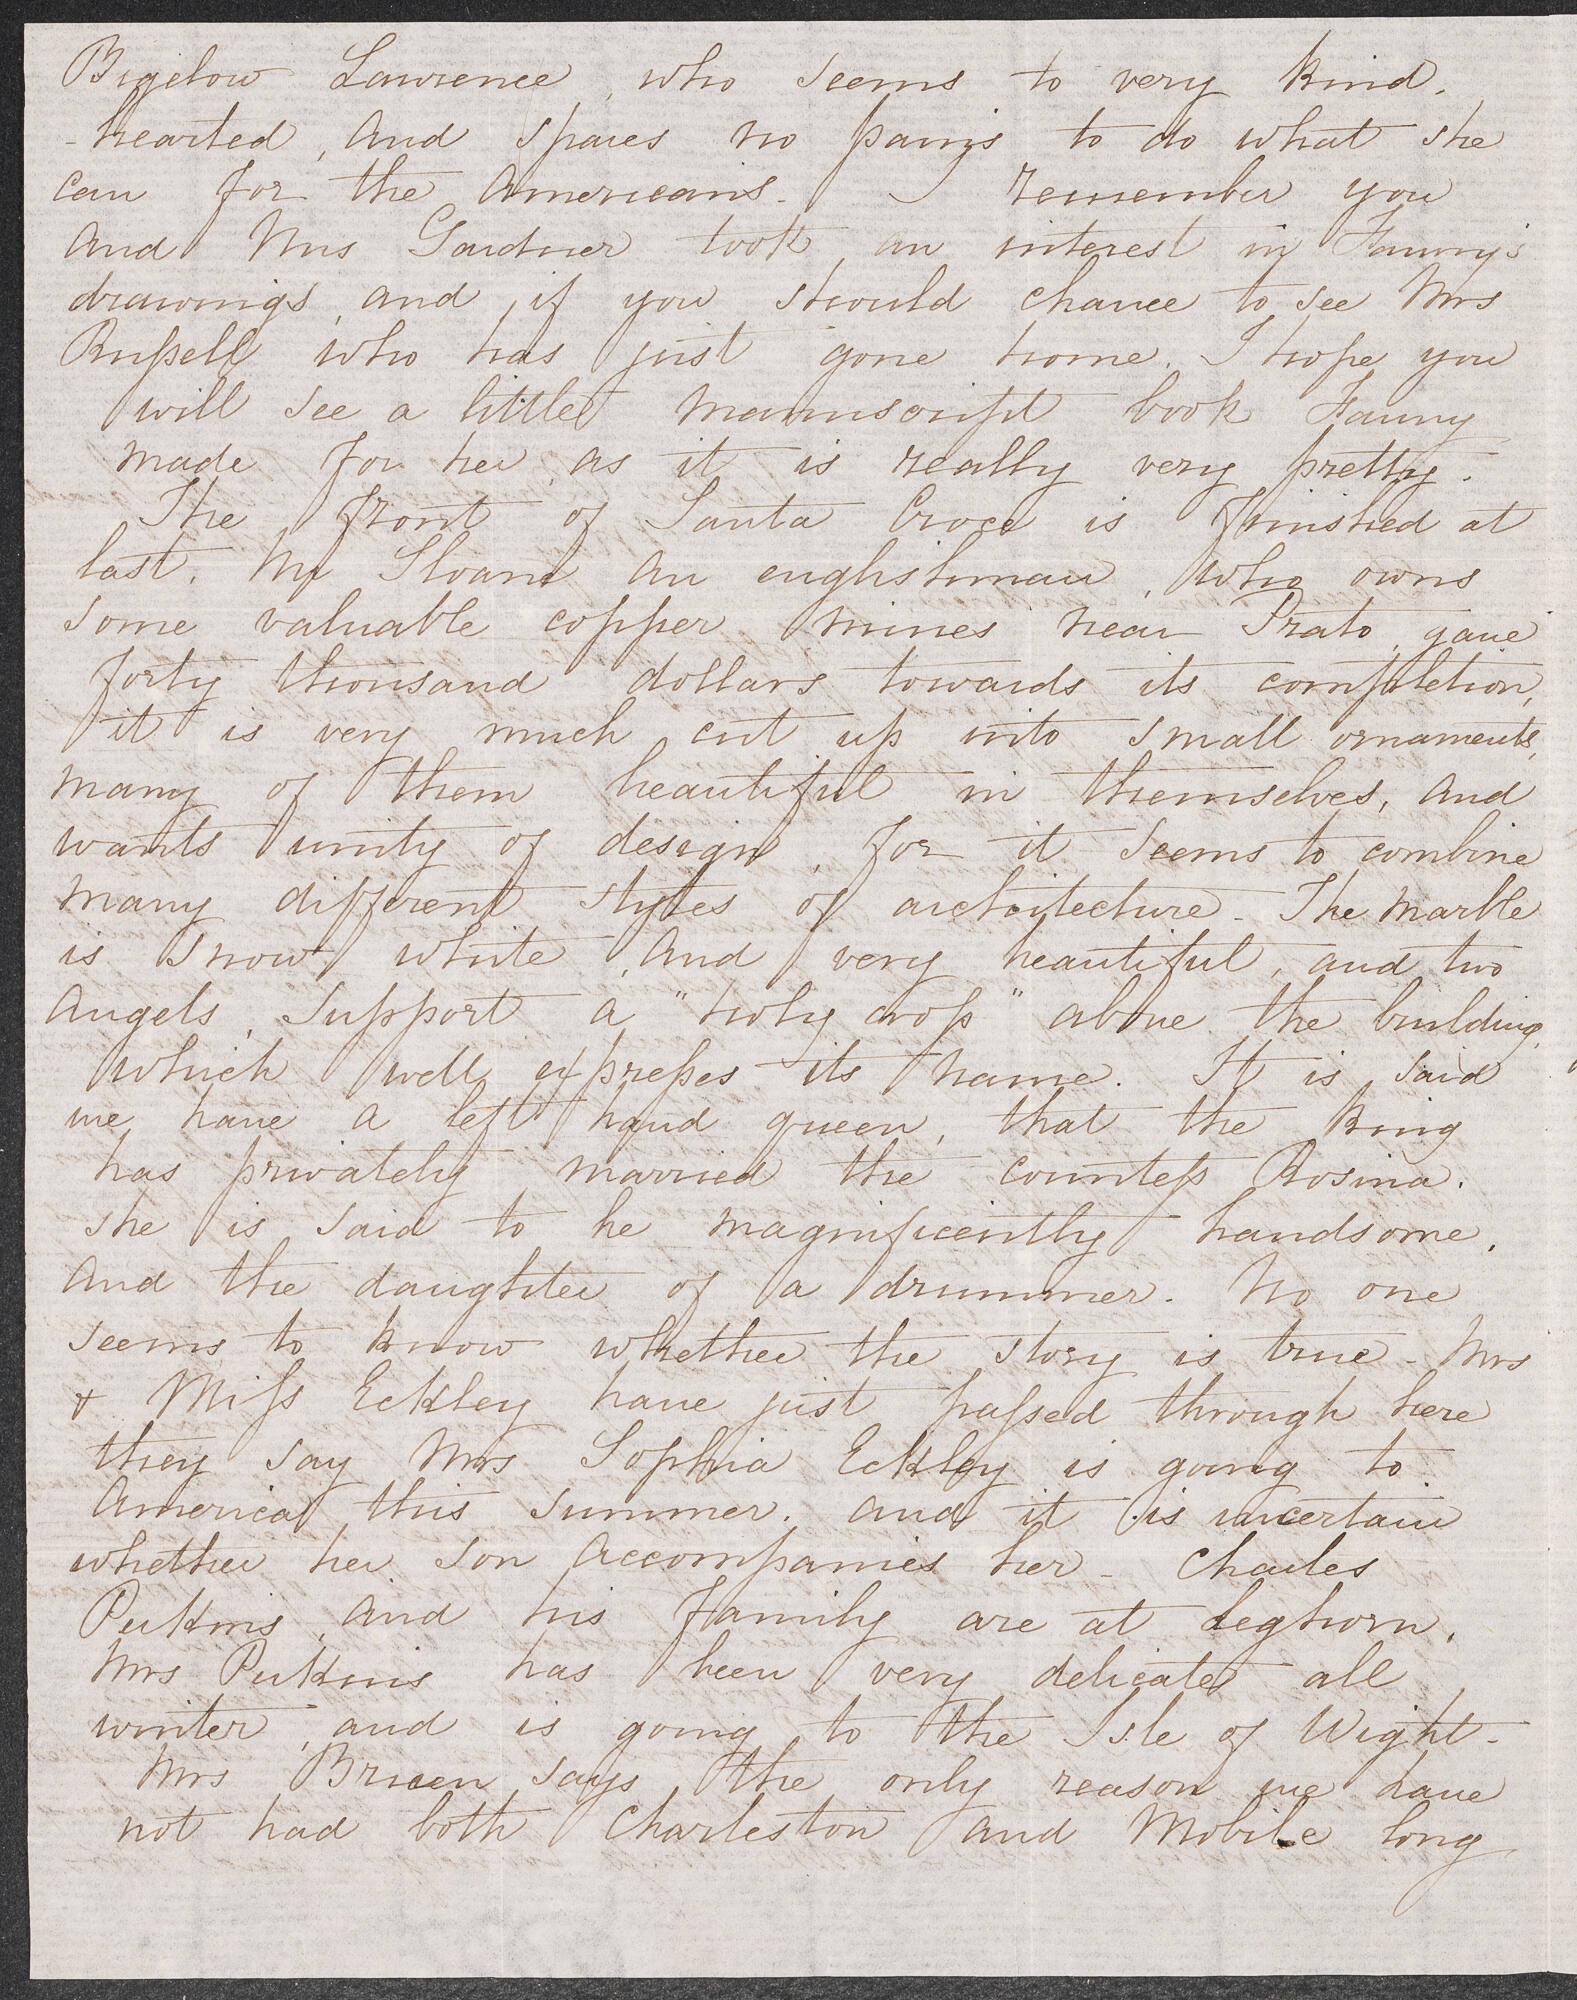 Bigelow Lawrence, who seems to very kind.
-hearted, and spares no pains to do what she
can for the Americans. I remember you
and Mrs Gardner took an interest in Fanny's
drawings, and if you should chance to see Mrs
Russell who has just gone home. I hope you
will see a little manuscript book Fanny
made for her as it is really very pretty.
The front of Santa Croce is finished at
last. Mr Sloane an englishman, who owns
some valuable copper mines near Prato, gave
forty thousand dollars towards its completion,
it is very much cut up into small ornaments,
many of them beautiful in themselves, and
wants unity of design, for it seems to combine
many different styles of architecture - The marble
is snow white, and very beautiful, and two
angels, support a "holy cross" above the building,
which well expresses its name. It is said
we have a left hand queen, that the King
has privately married the countess Rosina.
she is said to be magnificently handsome.
and the daughter of a drummer. No one
seems to know whether the story is true - Mrs
& Miss Eckley have just passed through here
they say Mrs Sophia Eckley is going to
America this summer. and it is uncertain
whether her son accompanies her - Charles
Perkins, and his family are at Leghorn.
Mrs Perkins has been very delicate all
winter, and is going to the Isle of Wight -
Mrs Bruen says the only reason we have
not had both Charleston and Mobile long